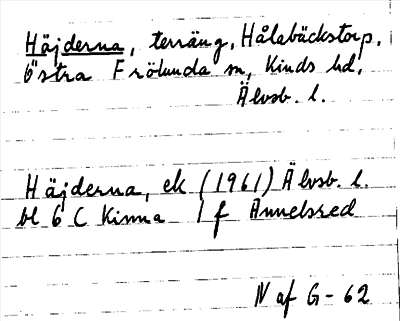 Häjderna, terräng, Hålabäckstorp,
Östra Frölunda sn, Kinds hd,
Älvsb. l.
Häjderna, ek (1961) Älvsb. l.
bl 6 C Kinna 1 f Annelsred
N af G-62